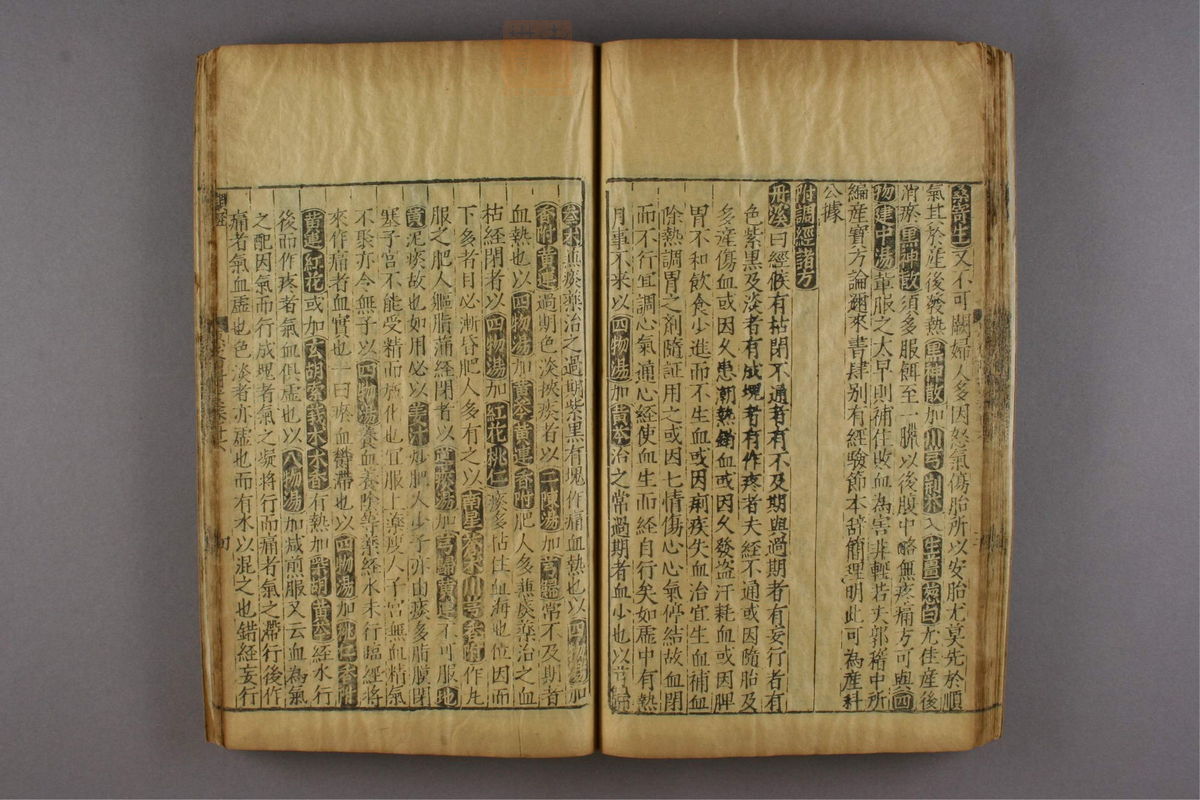 桑寄生又不可闕婦人多因怒氣傷胎所以安胎尤莫先於順
氣其於産後發熱黒神散加川芎荊芥入生薑葱白尤佳産後
消瘀黒神散須多服餌至一臘以後腹中略無疼痛方可與四
物建中湯輩服之太早則補住敗血為害非輕若夫郭稽中所
編産寶方論邇來書肆别有經驗節本辞簡理明此可為産科
公據
附調經諸方
丹溪曰經候有拈閉不通者有不及期與過期者有妄行者有
色紫黒及淡者有成塊者有作疼者夫經不通或因隨胎及
多産傷血或因久患潮熱銷血或因久發盗汗耗血或因脾
胃不和飲食少進而不生血或因痢疾失血治宜生血補血
除熱調胃之剤隨証用之或因七情傷心心氣停結故血閉
而不行宜調心氣通心經使血生而經自行矣如虚中有熱
月事不来以四物湯加黄芩治之常過期者血少也以芎歸
參术豆痰藥治之過期紫黒有塊作痛血熱也以四物湯加
香附黄連過期色淡挾痰者以二陳湯加芎歸常不及期者
血熱也以四物湯加黄芩黄連香附肥人多兼痰藥治之血
枯經閉者以四物湯加紅花桃仁痰多怗住血海也位因而
下多者目必漸昏肥人多有之以南星蒼术川芎香附作丸
服之肥人軀脂蒲經閉者以導痰湯加芎歸黄連不可服地
黄泥痰故也如用必以姜汁炒肥人少子亦由痰多脂膜閉
塞子宮不能受精而施化也宜服上藥瘦人子宮無血精氣
不聚亦令無子以四物湯養血養陰等藥經水未行臨經將
來作痛者血實也一曰瘀血欝滯也以四物湯加桃仁香附
黄連紅花或加玄胡索莪术木香有熱加柴胡黄芩經水行
後而作疼者氣血俱虚也以八物湯加减煎服又云血為氣
之配因氣而行成塊者氣之凝将行而痛者氣之滯行後作
痛者氣血虚也色淡者亦虚也而有水以混之也錯經妄行